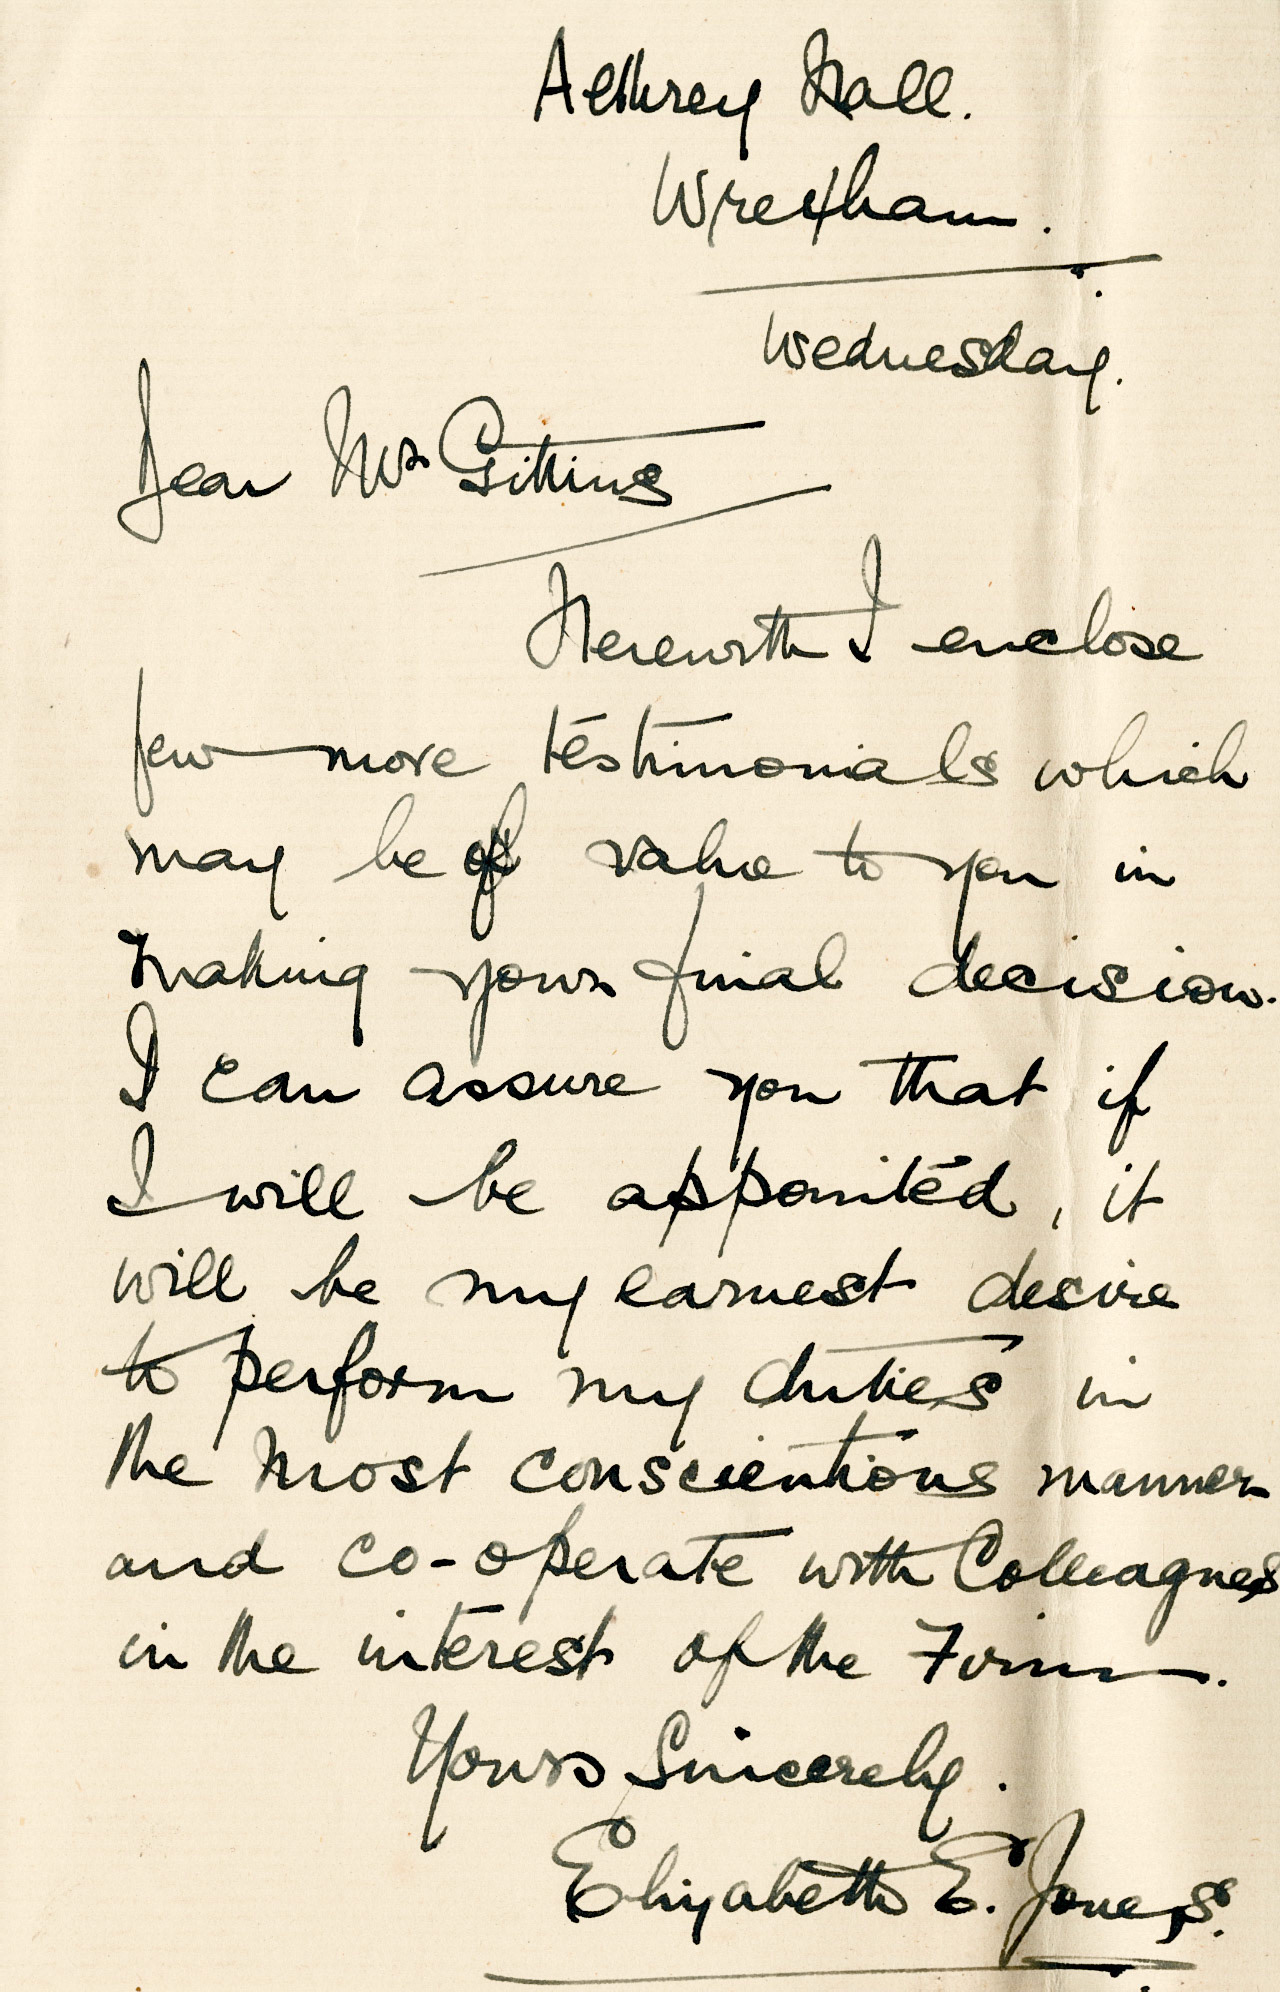 Aethrey Hall.
Wrexham.
Wednesday.
Dear Mr Gittins
Herewith I enclose
few more testimonials which
may be of value to you in
making your final decision.
I can assure you that if
I will be appointed, it
will be my earnest desire
to perform my duties in
the most conscientious manner
and co-operate with Colleagues
in the interest of the Firm.
Yours Sincerely.
Elizabeth E. Jones.